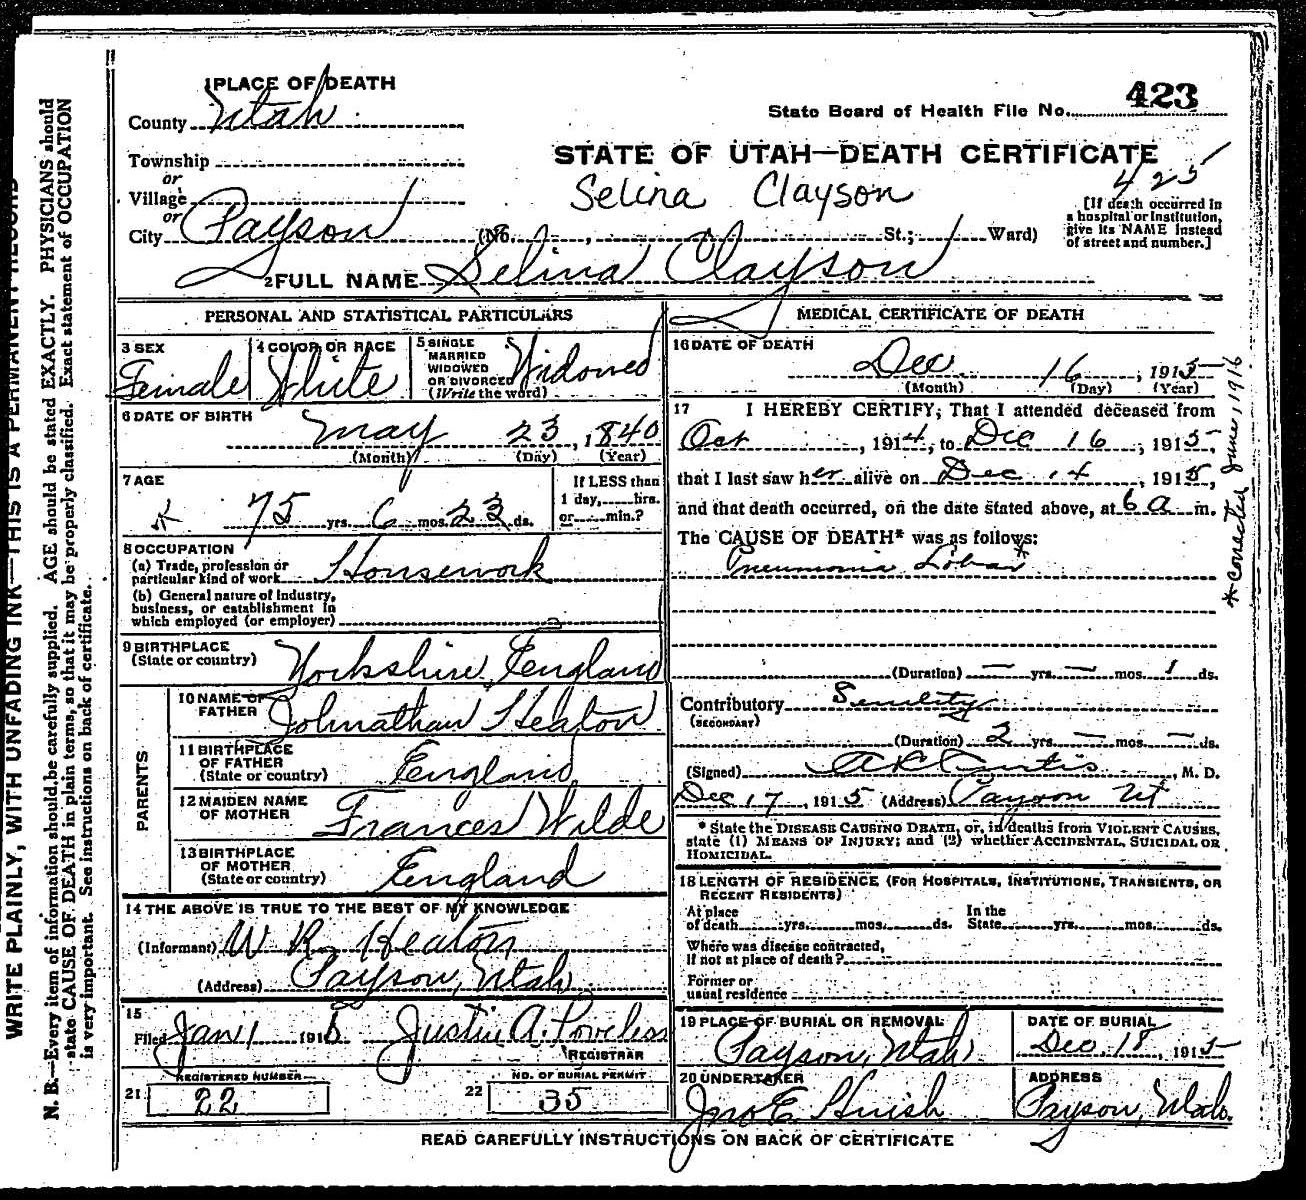 1 PLACE OF DEATH
County Utah
State Board of Health File No. 423
Township
STATE OF UTAH—DEATH CERTIFICATE
or
Village
Selina Clayson
425
or
City Payson (No. , St.; Ward)
[If death occurred in
a hospital or Institution,
give its NAME instead
of street and number.]
2 FULL NAME Selina Clayson
PERSONAL AND STATISTICAL PARTICULARS
3 SEX
Female
4 COLOR OR RACE
White
5 SINGLE
MARRIED
WIDOWED
OR DIVORCED
(Write the word)
Widowed
6 DATE OF BIRTH
May 23, 1840
(Month) (Day) (Year)
7 AGE
75 yrs. 6 mos. 23 ds.
If LESS than
1 day, hrs.
or min.?
8 OCCUPATION
(a) Trade, profession or
particular kind of work Housework
(b) General nature of industry,
business, or establishment in
which employed (or employer)
9 BIRTHPLACE
(State or country) Yorkshire, England
PARENTS
10 NAME OF
FATHER Johnathan Heaton
11 BIRTHPLACE
OF FATHER
(State or country) England
12 MAIDEN NAME
OF MOTHER Frances Wilde
13 BIRTHPLACE
OF MOTHER
(State or country) England
14 THE ABOVE IS TRUE TO THE BEST OF MY KNOWLEDGE
(Informant) W R Heaton
(Address) Payson, Utah
15
Filed Jan 1 191 Justin A. Loveless
REGISTRAR
REGISTERED NUMBER
21 22
NO. OF BURIAL PERMIT
22 35
MEDICAL CERTIFICATE OF DEATH
16 DATE OF DEATH
Dec. 16, 1915
(Month) (Day) (Year)
17 I HEREBY CERTIFY, That I attended deceased from
Oct, 1914, to Dec 16, 1915,
that I last saw her alive on Dec 14, 1915,
and that death occurred, on the date stated above, at 6 a m.
The CAUSE OF DEATH* was as follows:
Pneumonia Lobar*
(Duration) — yrs. — mos. 1 ds.
Contributory Senility
(SECONDARY)
(Duration) 2 yrs. — mos. — ds.
(Signed) Curtis, M. D.
Dec 17, 1915 (Address) Payson Ut
* State the DISEASE CAUSING DEATH, or, in deaths from VIOLENT CAUSES,
state (1) MEANS OF INJURY; and (2) whether ACCIDENTAL, SUICIDAL OR
HOMICIDAL.
18 LENGTH OF RESIDENCE (FOR HOSPITALS, INSTITUTIONS, TRANSIENTS, OR
RECENT RESIDENTS)
At place
of death yrs. mos. ds.
In the
State yrs. mos. ds.
Where was disease contracted,
if not at place of death?
Former or
usual residence
19 PLACE OF BURIAL OR REMOVAL
Payson, Utah
DATE OF BURIAL
Dec. 18, 1915
20 UNDERTAKER
Jno E. Huish
ADDRESS
Payson, Utah.
READ CAREFULLY INSTRUCTIONS ON BACK OF CERTIFICATE
WRITE PLAINLY, WITH UNFADING INK—THIS IS A PERMANENT RECORD
N. B.—Every item of information should be carefully supplied. AGE should be stated EXACTLY. PHYSICIANS should
state CAUSE OF DEATH in plain terms, so that it may be properly classified. Exact statement of OCCUPATION
is very important. See instructions on back of certificate.
* Corrected 1916